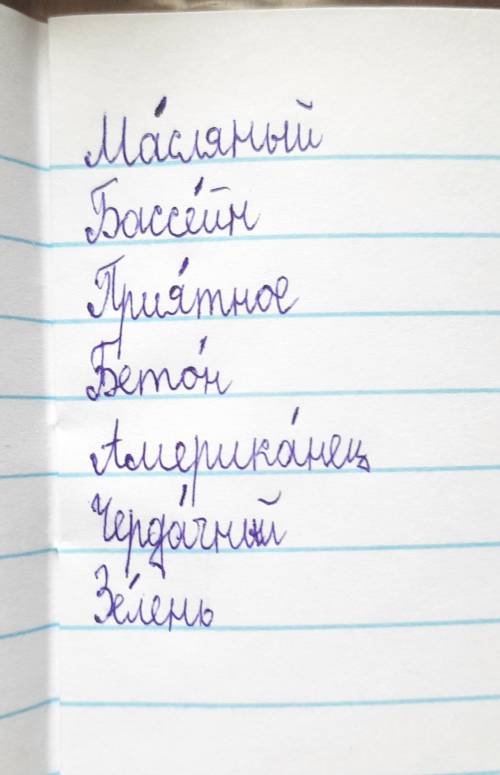 Ма́сляный
Бассе́йн
Прия́тное
Бето́н
Америка́нец
Черда́чный
Зе́лень